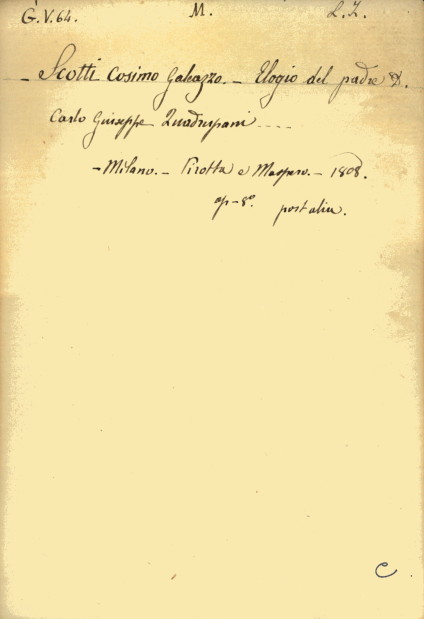 G.V.64. M. L.Z.
- Scotti Cosimo Galeazzo. - Elogio del padre D.
Carlo Giuseppe Quadrupani ....
- Milano. - Pirotta e Maspero. - 1808.
op - 8°. post alia.
C